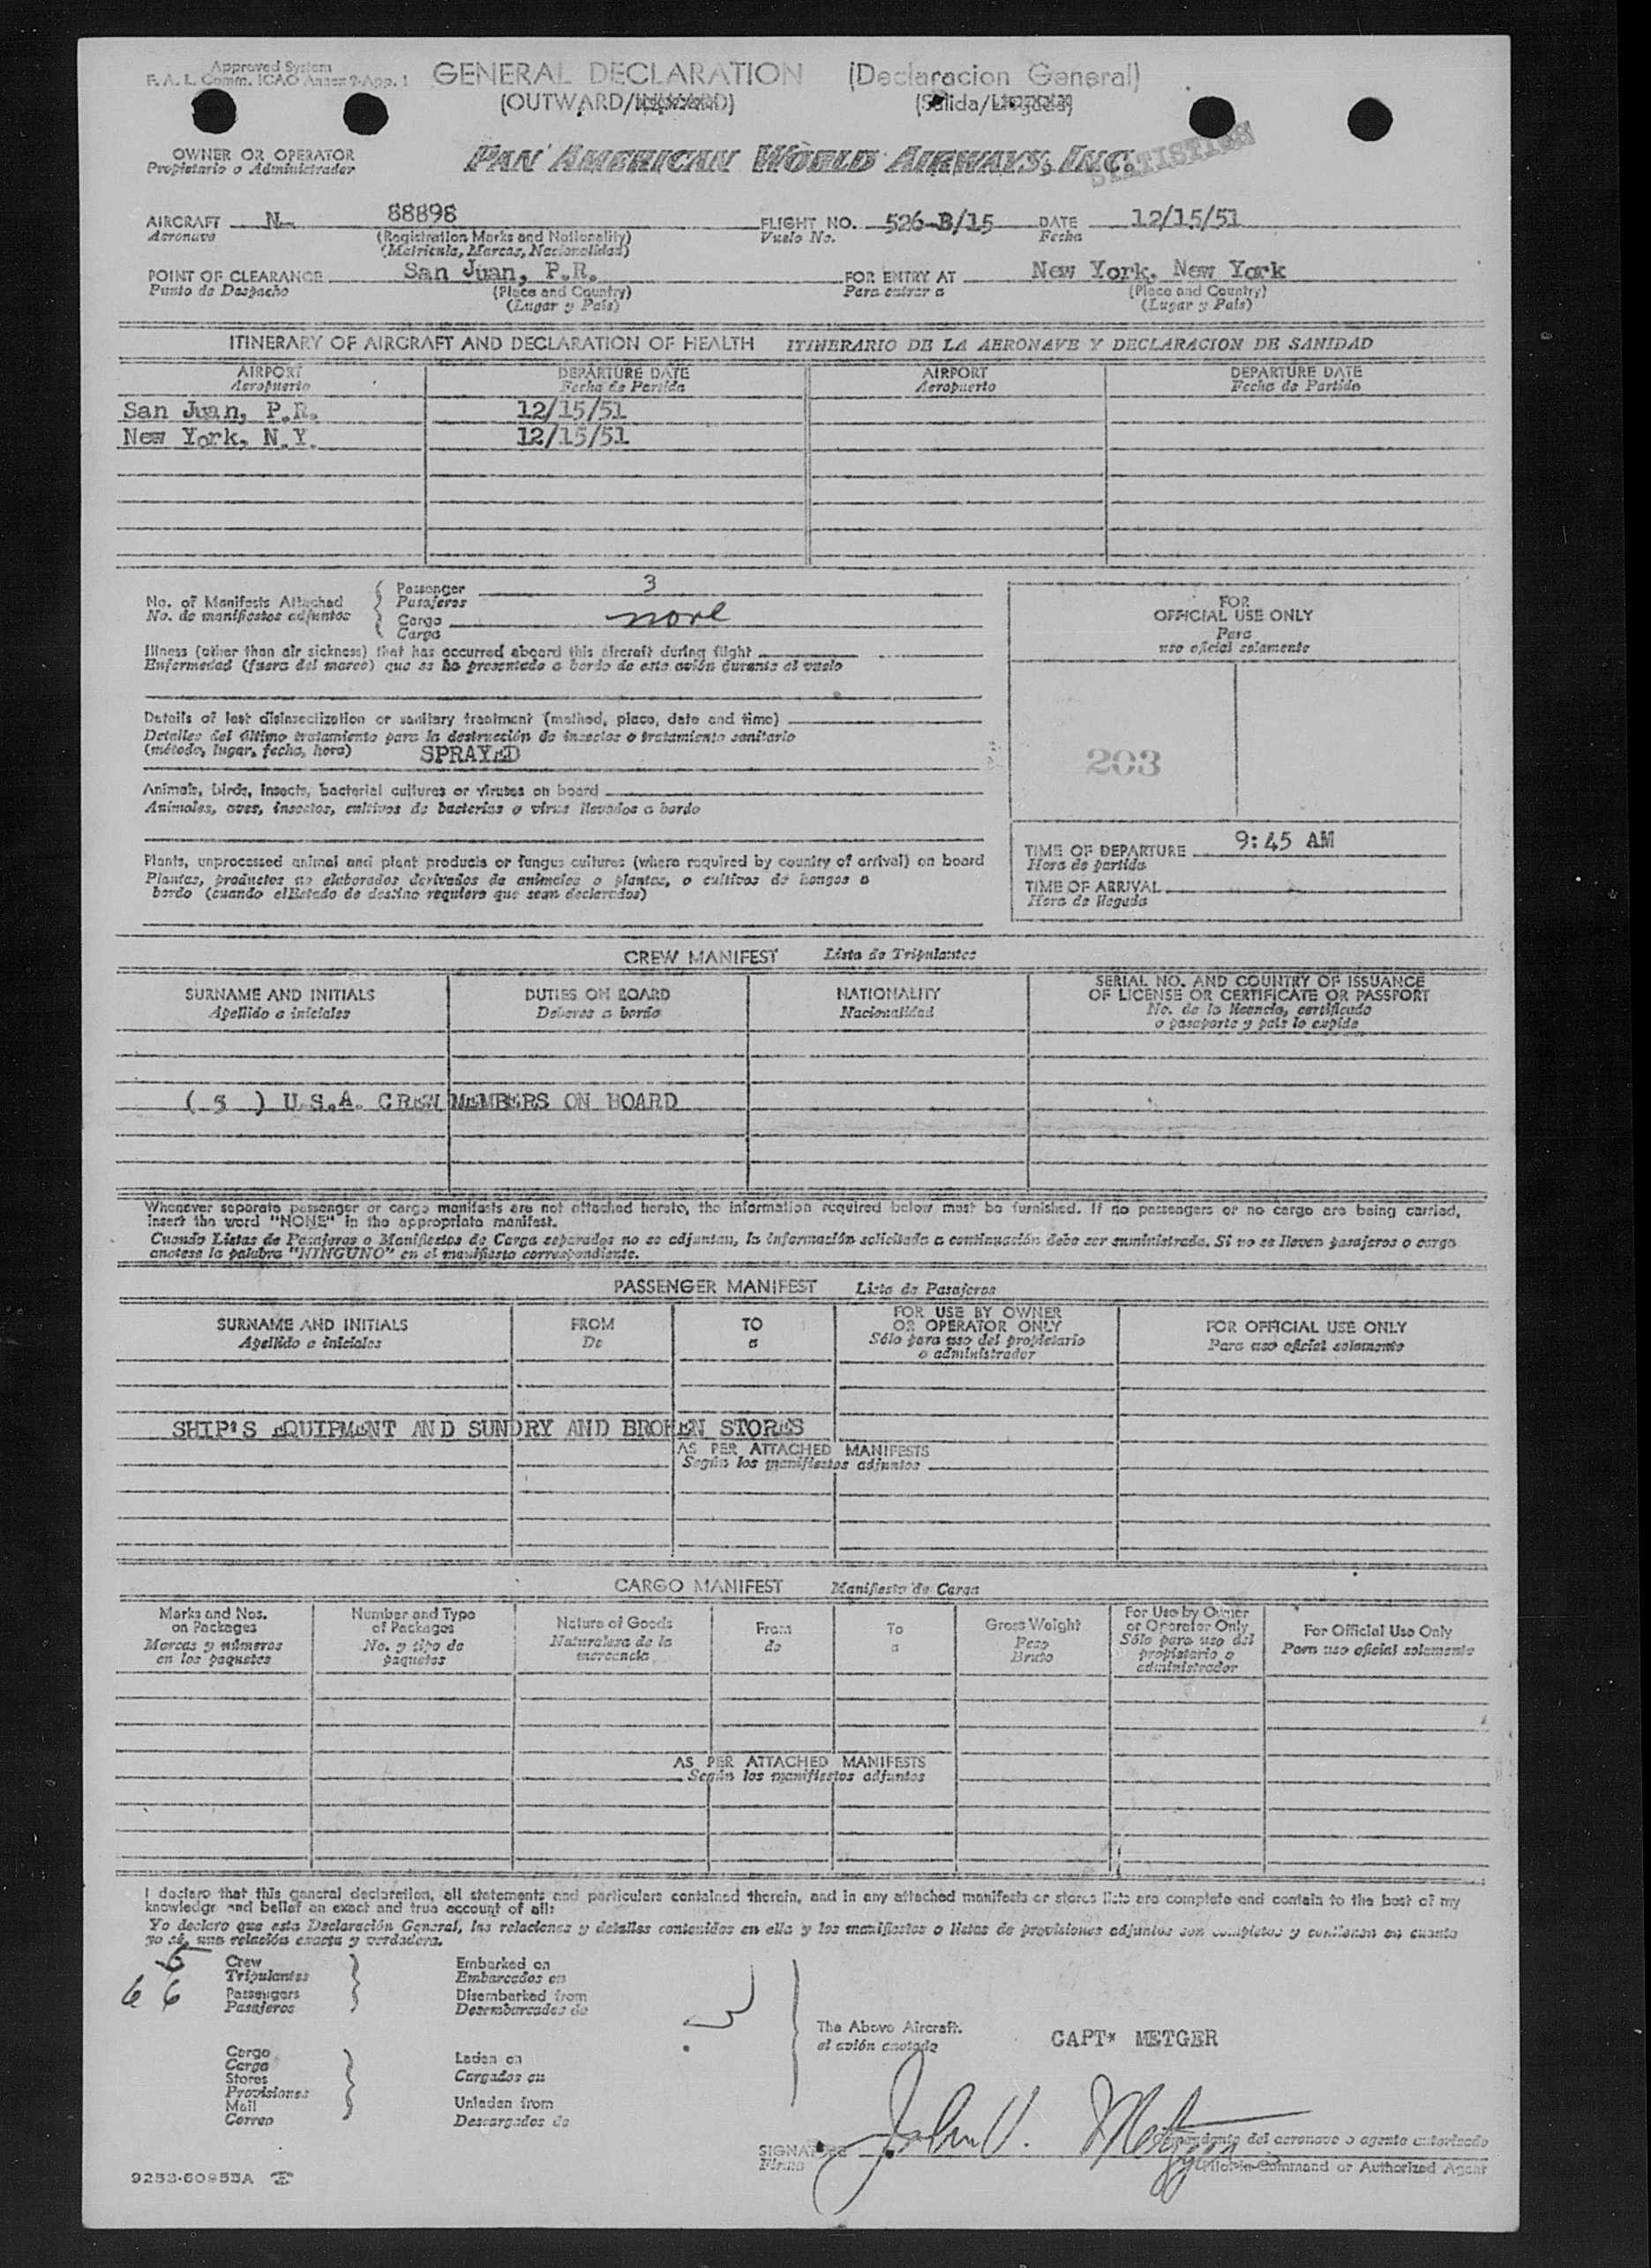 Approved System
F. A. L. Comm. ICAO Annex 9-App. 1
GENERAL DECLARATION (Declaracion General)
(OUTWARD/INWARD) (Salida/Llegada)
OWNER OR OPERATOR
Propietario o Administrador
PAN AMERICAN WORLD AIRWAYS, INC.
STATISTICS
AIRCRAFT N- 88898 FLIGHT NO. 526-B/15 DATE 12/15/51
Aeronave (Registration Marks and Nationality) Vuelo No. Fecha
(Matricula, Marcas, Nacionalidad)
POINT OF CLEARANCE San Juan, P.R. FOR ENTRY AT New York, New York
Punto de Despacho (Place and Country) Para entrar a (Place and Country)
(Lugar y País) (Lugar y País)
ITINERARY OF AIRCRAFT AND DECLARATION OF HEALTH ITINERARIO DE LA AERONAVE Y DECLARACION DE SANIDAD
AIRPORT DEPARTURE DATE AIRPORT DEPARTURE DATE
Aeropuerto Fecha de Partida Aeropuerto Fecha de Partida
San Juan, P.R. 12/15/51
New York, N.Y. 12/15/51
No. of Manifests Attached
No. de manifiestos adjuntos
Passenger 3
Pasajeros
Cargo none
Carga
Illness (other than air sickness) that has occurred aboard this aircraft during flight
Enfermedad (fuera del mareo) que se ha presentado a bordo de este avión durante el vuelo
Details of last disinsectization or sanitary treatment (method, place, date and time)
Detalles del último tratamiento para la destrucción de insectos o tratamiento sanitario
(método, lugar, fecha, hora) SPRAYED
Animals, birds, insects, bacterial cultures or viruses on board
Animales, aves, insectos, cultivos de bacterias o virus llevados a bordo
Plants, unprocessed animal and plant products or fungus cultures (where required by country of arrival) on board
Plantas, productos no elaborados derivados de animales o plantas, o cultivos de hongos a
bordo (cuando el Estado de destino requiera que sean declarados)
FOR
OFFICIAL USE ONLY
Para
uso oficial solamente
203
TIME OF DEPARTURE 9:45 AM
Hora de partida
TIME OF ARRIVAL
Hora de llegada
CREW MANIFEST Lista de Tripulantes
SURNAME AND INITIALS DUTIES ON BOARD NATIONALITY SERIAL NO. AND COUNTRY OF ISSUANCE
OF LICENSE OR CERTIFICATE OR PASSPORT
Apellido e iniciales Deberes a bordo Nacionalidad No. de la licencia, certificado
o pasaporte y país lo expide
( 5 ) U.S.A. CREW MEMBERS ON BOARD
Whenever separate passenger or cargo manifests are not attached hereto, the information required below must be furnished. If no passengers or no cargo are being carried,
insert the word "NONE" in the appropriate manifest.
Cuando Listas de Pasajeros o Manifiestos de Carga separados no se adjuntan, la información solicitada a continuación debe ser suministrada. Si no se llevan pasajeros o carga
anotese la palabra "NINGUNO" en el manifiesto correspondiente.
PASSENGER MANIFEST Lista de Pasajeros
SURNAME AND INITIALS FROM TO FOR USE BY OWNER
OR OPERATOR ONLY FOR OFFICIAL USE ONLY
Apellido e iniciales De a Sólo para uso del propietario
o administrador Para uso oficial solamente
SHIP'S EQUIPMENT AND SUNDRY AND BROKEN STORES
AS PER ATTACHED MANIFESTS
Según los manifiestos adjuntos
CARGO MANIFEST Manifiesto de Carga
Marks and Nos.
on Packages
Marcas y números
en los paquetes
Number and Type
of Packages
No. y tipo de
paquetes
Nature of Goods
Naturaleza de la
mercancia
From
de
To
a
Gross Weight
Peso
Bruto
For Use by Owner
or Operator Only
Sólo para uso del
propietario o
administrador
For Official Use Only
Para uso oficial solamente
AS PER ATTACHED MANIFESTS
Según los manifiestos adjuntos
I declare that this general declaration, all statements and particulars contained therein, and in any attached manifests or stores lists are complete and contain to the best of my
knowledge and belief an exact and true account of all:
Yo declaro que esta Declaración General, las relaciones y detalles contenidos en ella y los manifiestos o listas de provisiones adjuntos son completos y contienen en cuanto
yo sé, una relación exacta y verdadera.
5 Crew
Tripulantes
66 Passengers
Pasajeros
Embarked on
Embarcados en
Disembarked from
Desembarcados de
Cargo
Carga
Stores
Provisiones
Mail
Correo
Laden on
Cargados en
Unladen from
Descargados de
The Above Aircraft.
el avión anotado
CAPT* METGER
SIGNATURE John V. Metzger
Firma
Comandante del aeronave o agente autorizado
Pilot-in-Command or Authorized Agent
9253-60953A